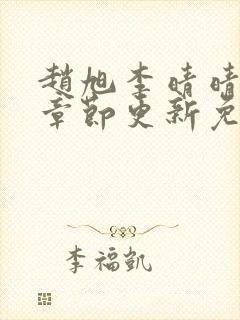 趙旭李晴晴
章節更新免
李福凱